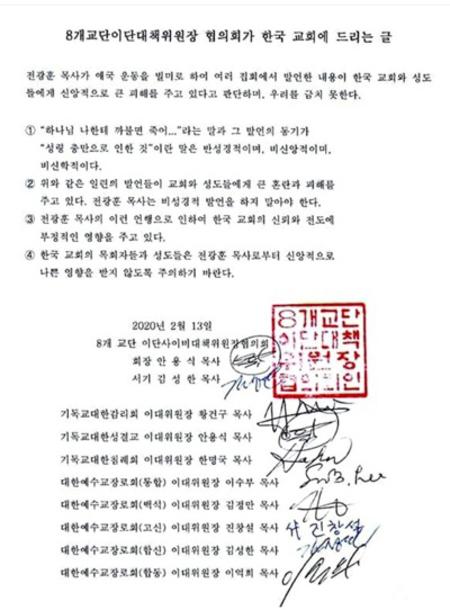 8개교단이단대책위원장 협의회가 한국 교회에 드리는 글
전광훈 목사가 애국 운동을 빌미로 하여 여러 집회에서 발언한 내용이 한국 교회와 성도
들에게 신앙적으로 큰 피해를 주고 있다고 판단하며, 우려를 금치 못한다.
① “하나님 나한테 까불면 죽어...”라는 말과 그 발언의 동기가
“성령 충만으로 인한 것”이란 말은 반성경적이며, 비신앙적이며,
비신학적이다.
② 위와 같은 일련의 발언들이 교회와 성도들에게 큰 혼란과 피해를
주고 있다. 전광훈 목사는 비성경적 발언을 하지 말아야 한다.
③ 전광훈 목사의 이런 언행으로 인하여 한국 교회의 신뢰와 전도에
부정적인 영향을 주고 있다.
④ 한국 교회의 목회자들과 성도들은 전광훈 목사로부터 신앙적으로
나쁜 영향을 받지 않도록 주의하기 바란다.
2020년 2월 13일
8개 교단 이단사이비대책위원장협의회
회장 안용식 목사
서기 김성한 목사
8개교단
이단대책
위원장
협의회인
기독교대한감리회 이대위원장 황건구 목사
기독교대한성결교 이대위원장 안용식 목사
기독교대한침례회 이대위원장 한명국 목사
대한예수교장로회(통합) 이대위원장 이수부 목사
대한예수교장로회(백석) 이대위원장 김정만 목사
대한예수교장로회(고신) 이대위원장 진창설 목사
진창설
대한예수교장로회(합신) 이대위원장 김성한 목사
대한예수교장로회(합동) 이대위원장 이억희 목사